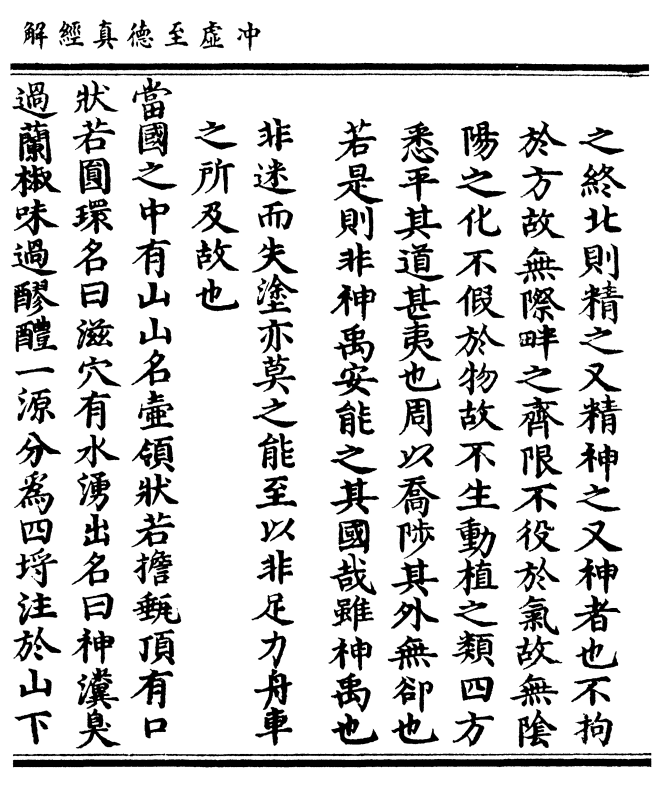 冲虚至德真經解
之終北則精之又精神之又神者也不拘
於方故無際畔之齊限不役於氣故無隂
陽之化不假於物故不生動植之類四方
悉平其道甚夷也周以喬陟其外無卻也
若是則非神禹安能之其國哉雖神禹也
非迷而失塗亦莫之能至以非足力舟車
之所及故也
當國之中有山山名壷領狀若擔甀頂有口
狀若圓環名曰滋穴有水湧出名曰神瀵臭
過蘭椒味過醪醴一源分為四埒注於山下